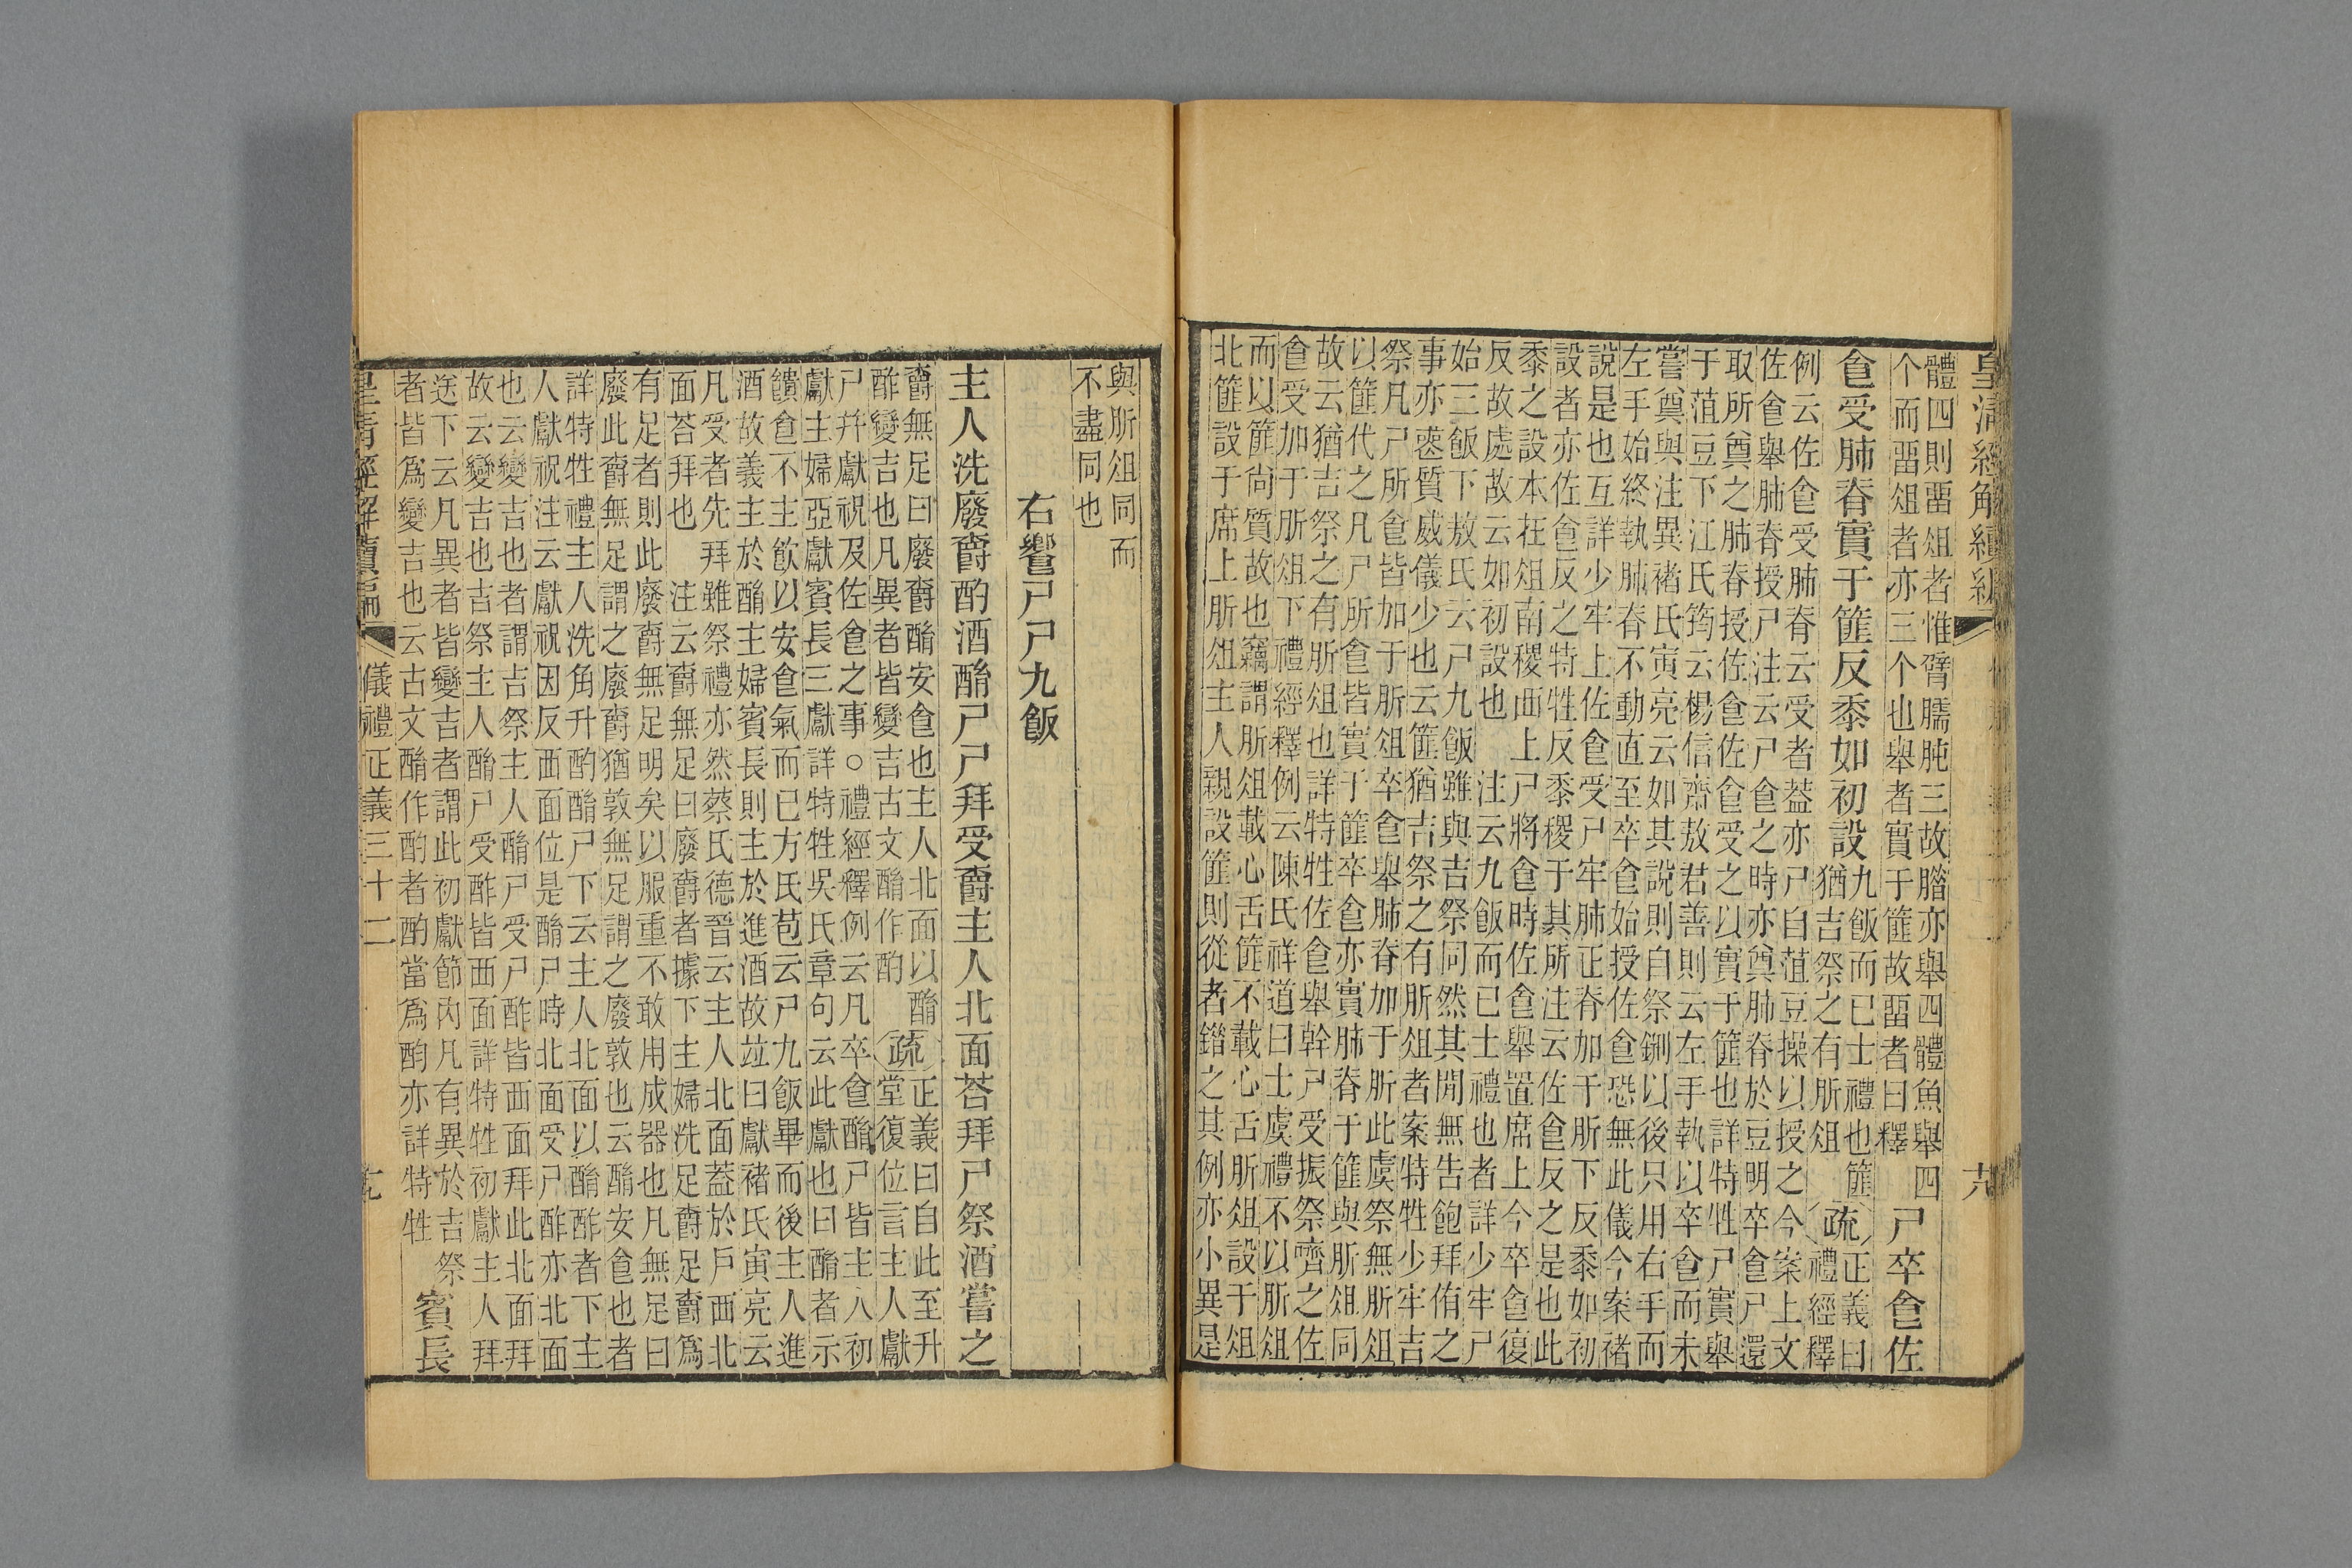 皇清經解續編
體四則畱俎者惟臂臑肫三故腊亦舉四體魚舉四
个而畱俎者亦三个也舉者實于篚故畱者曰釋
尸卒㑹佐
㑹受肺脊實于篚反黍如初設
九飯而已士禮也篚
猶吉祭之有肵俎
疏
正義曰
禮經釋
例云佐㑹受肺脊云受者葢亦尸自菹豆操以授之今案上文
佐㑹舉肺脊授尸注云尸㑹之時亦奠肺脊於豆明卒㑹尸還
取所奠之肺脊授佐㑹佐㑹受之以實于篚也詳特牲尸實舉
于菹豆下江氏筠云楊信齋敖君善則云左手執以卒㑹而未
嘗奠與注異褚氏寅亮云如其說則自祭鉶以後只用右手而
左手始終執肺脊不動直至卒㑹始授佐㑹恐無此儀今案褚
說是也互詳少牢上佐㑹受尸牢肺正脊加于肵下反黍如初
設者亦佐㑹反之特牲反黍稷于其所注云佐㑹反之是也此
黍之設本在俎南稷西上尸將㑹時佐㑹舉置席上今卒㑹復
反故處故云如初設也　注云九飯而已士禮也者詳少牢尸
始三飯下敖氏云尸九飯雖與吉祭同然其閒無告飽拜侑之
事亦䘮質威儀少也云篚猶吉祭之有肵俎者案特牲少牢吉
祭凡尸所㑹皆加于肵俎卒㑹舉肺脊加于肵此虞祭無肵俎
以篚代之凡尸所㑹皆實于篚卒㑹亦實肺脊于篚與肵俎同
故云猶吉祭之有肵俎也詳特牲佐㑹舉幹尸受振祭嚌之佐
㑹受加于肵俎下禮經釋例云陳氏祥道曰士虞禮不以肵俎
而以篚尙質故也竊謂肵俎載心舌篚不載心舌肵俎設于俎
北篚設于席上肵俎主人親設篚則從者錯之其例亦小異是
與肵俎同而
不盡同也
右饗尸尸九飯
主人洗廢爵酌酒酳尸尸拜受爵主人北面荅拜尸祭酒嘗之
爵無足曰廢爵酳安㑹也主人北面以酳
酢變吉也凡異者皆變吉古文酳作酌
疏
正義曰自此至升
堂復位言主人獻
尸幷獻祝及佐㑹之事○禮經釋例云凡卒㑹酳尸皆主人初
獻主婦亞獻賓長三獻詳特牲吳氏章句云此獻也曰酳者示
饋㑹不主飮以安㑹氣而已方氏苞云尸九飯畢而後主人進
酒故義主於酳主婦賓長則主於進酒故竝曰獻褚氏寅亮云
凡受者先拜雖祭禮亦然蔡氏德晉云主人北面葢於戶西北
面荅拜也　注云爵無足曰廢爵者據下主婦洗足爵足爵爲
有足者則此廢爵無足明矣以服重不敢用成器也凡無足曰
廢此爵無足謂之廢爵猶敦無足謂之廢敦也云酳安㑹也者
詳特牲禮主人洗角升酌酳尸下云主人北面以酳酢者下主
人獻祝注云獻祝因反西面位是酳尸時北面受尸酢亦北面
也云變吉也者謂吉祭主人酳尸受尸酢皆西面拜此北面拜
故云變吉也吉祭主人酳尸受酢皆西面詳特牲初獻主人拜
送下云凡異者皆變吉者謂此初獻節內凡有異於吉祭
者皆爲變吉也云古文酳作酌者酌當爲酌亦詳特牲
賓長
皇清經解續編
儀禮正義三十二